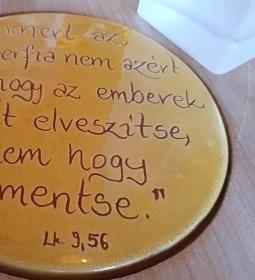 mert az
berfia nem azért
hogy az emberek
t elveszítse,
em hogy
mentse."
Lk. 9,56